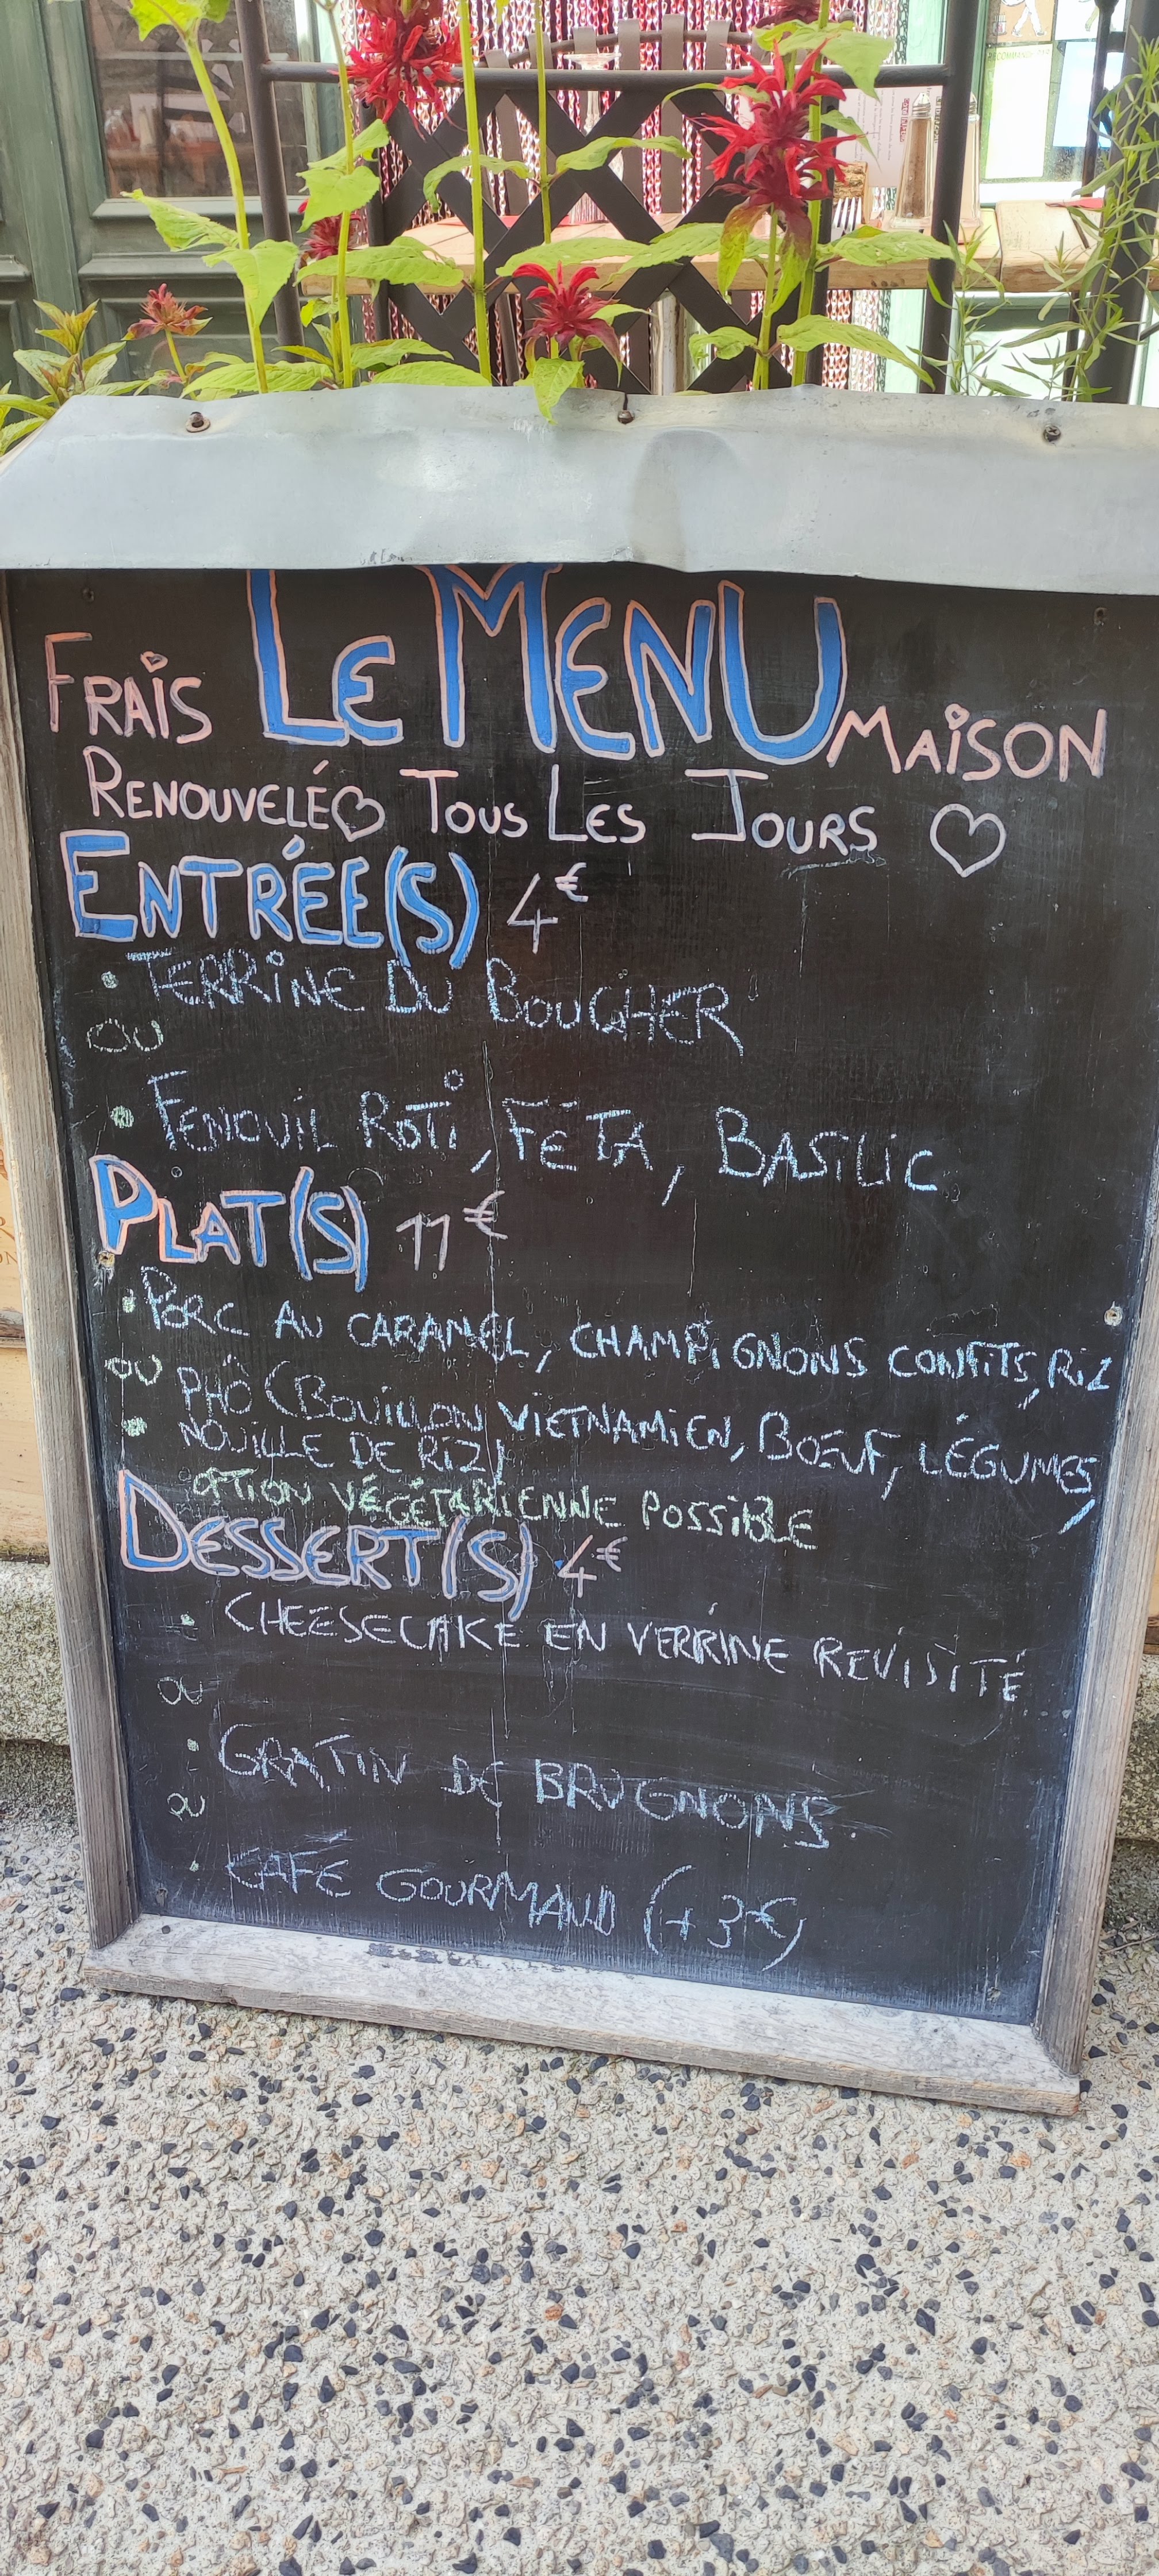 LE MENU
FRAIS MAISON
RENOUVELÉ TOUS LES JOURS
ENTRÉE(S) 4€
• TERRINE DU BOUCHER
OU
• FENOUIL RÔTI, FETA, BASILIC
PLAT(S) 11€
• PORC AU CARAMEL, CHAMPIGNONS CONFITS, RIZ
OU
• PHÔ (BOUILLON VIETNAMIEN, BŒUF, LÉGUMES,
NOUILLE DE RIZ)
OPTION VÉGÉTARIENNE POSSIBLE
DESSERT(S) 4€
• CHEESECAKE EN VERRINE REVISITÉ
OU
• GRATIN DE BRUGNONS.
OU
• CAFÉ GOURMAND (+3€)